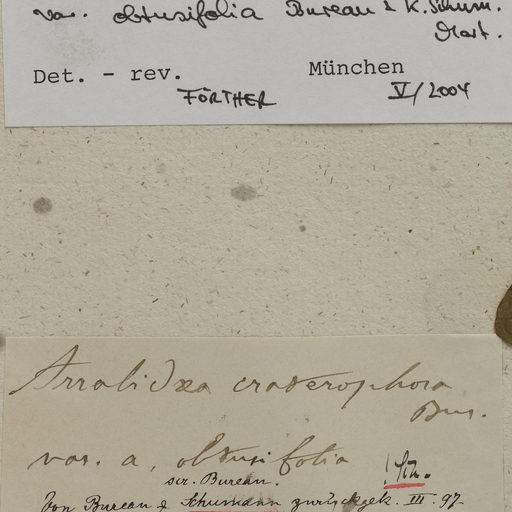 var. obtusifolia Bureau & K. Schum.
Mart.
Det. - rev. München
FÖRTHER V/2004
Arrabidaea craterophora
Bur.
var. a, obtusifolia
scr. Bureau.
Von Bureau & Schumann zurückgek. III. 97